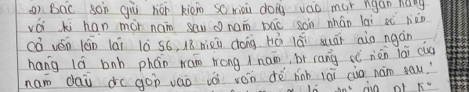 2) Bác Sơn gửi hơi kiệm 50 triệu đồng vào một ngân hàng
vớ kì hạn một năm sau 2 năm bác Sơn nhận lại số tiền
cả vốn lẫn lãi là 56,18 triệu đồng. Hỏi lãi suất của ngân
hàng là bnh phần trăm trong 1 năm, bt rằng số tiền lãi của
năm đầu đc gộp vào với vốn để tính lãi của năm sau.